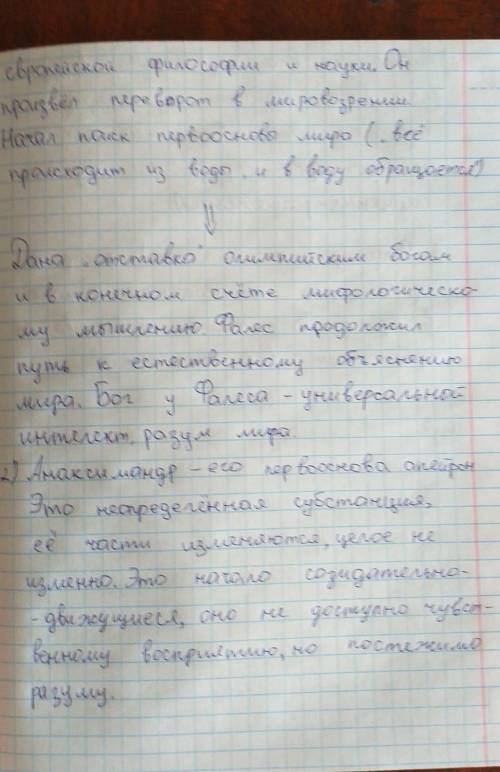 европейской философии и науки. Он
произвёл переворот в мировозрении
Начал поиск первоосновы мира (" всё
происходит из воды и в воду обращается")
⇓
Дана "отставка" олимпийским богам
и в конечном счёте мифологическо-
му мышлению. Фалес продоложил
путь к естественному объяснению
мира. Бог у Фалеса - универсальный
интелект, разум мира.
2) Анаксимандр - его первооснова апейрон
Это неопределённая субстанция,
её части изменяются, целое не
изменно. Это начало созидательно-
-движущиеся, оно не доступно чувст-
венному восприятию, но постежимо
разуму.